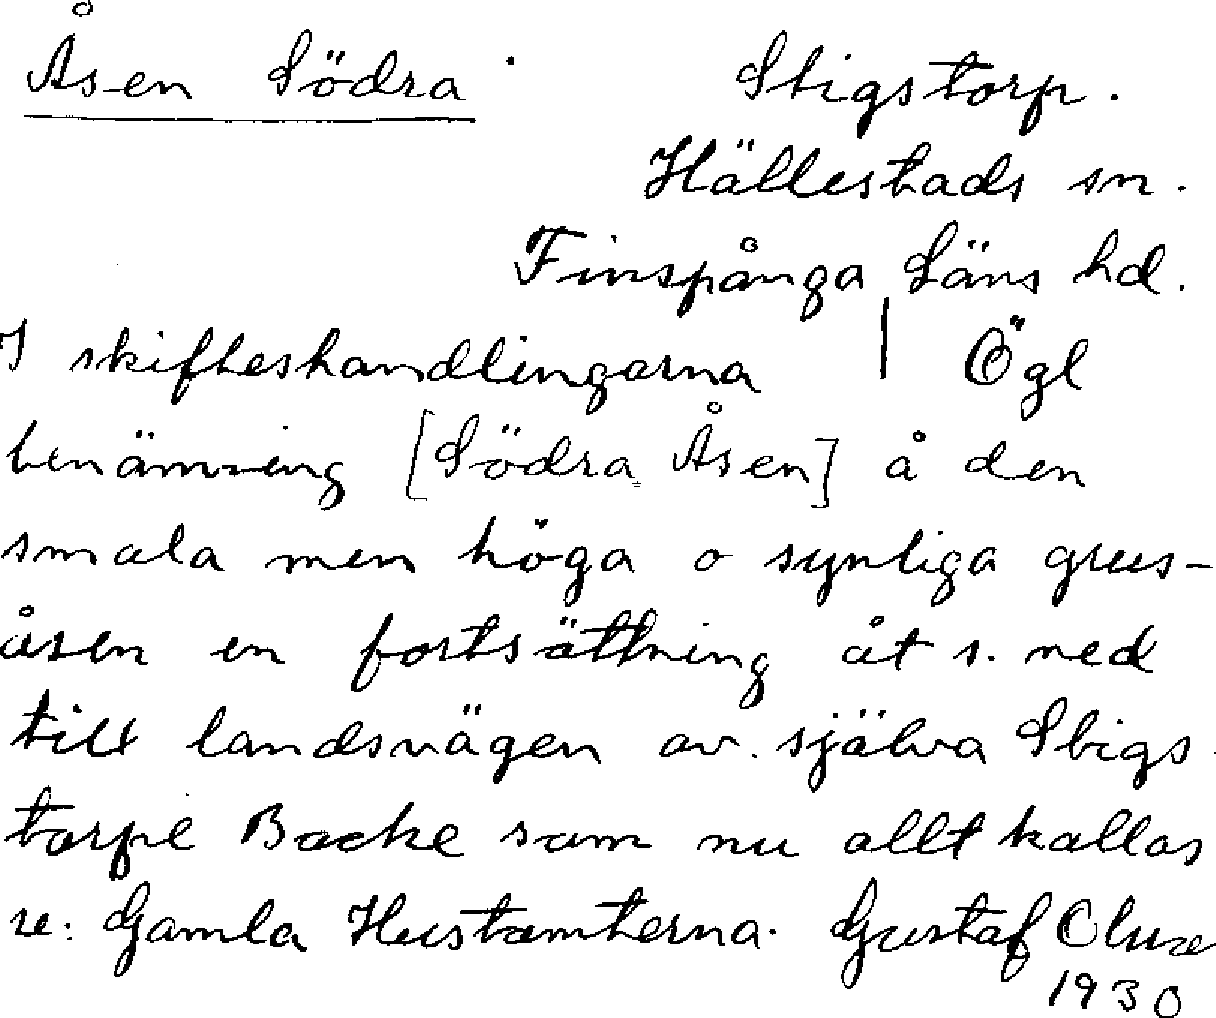 Åsen Södra. Stigstorp.
Hällestads sn.
Finspånga Läns hd.
I skifteshandlingarna | Ögl
benämning [Södra Åsen] å den
smala men höga o synliga grus-
åsen en fortsättning åt s. ned
till landsvägen av själva Stigs
torpe Backe som nu allt kallas
se: Gamla Hustomterna. Gustaf
1930